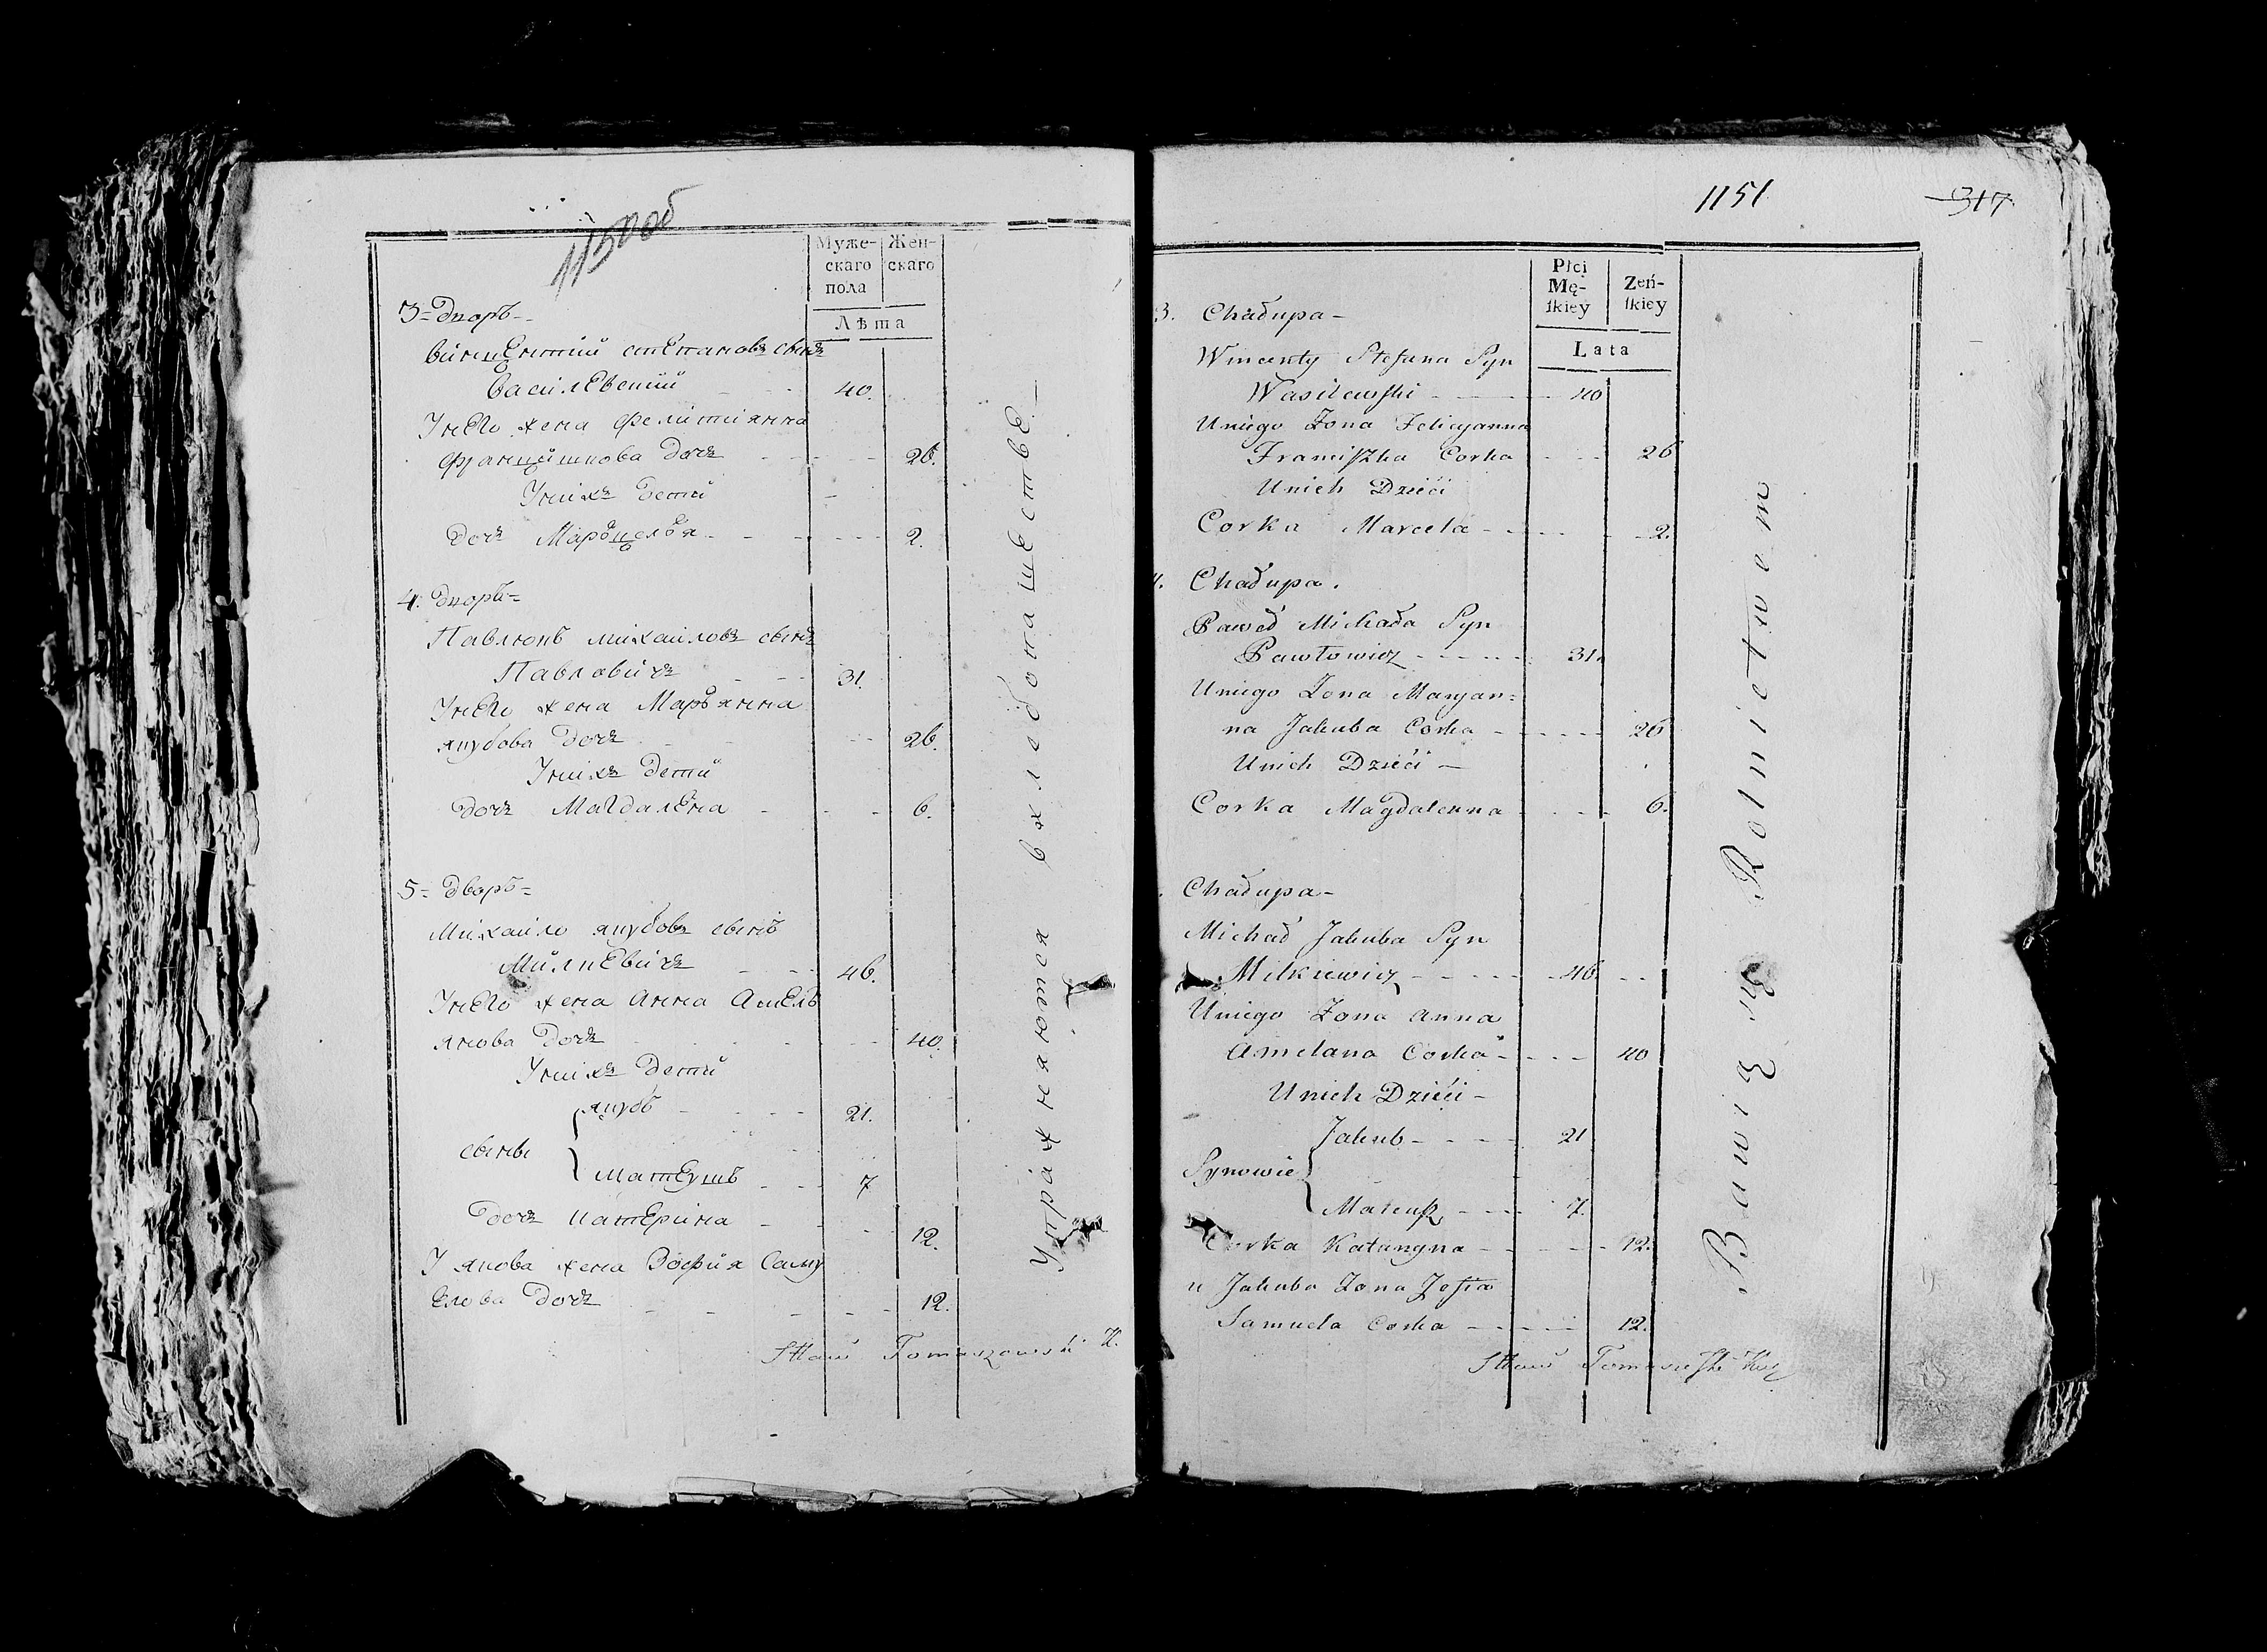 1150 об
Муже-
скаго
пола
Жен-
скаго
Лѣта
3= Дворъ--
Винцентий степановъ сынъ
Василевский 40.
У него жена Фелитиянна
Францишкова дочь 26.
У нихъ Дети
Дочь Марцелля 2.
4: Дворъ=
Павлюкъ михаиловъ сынъ
Павловичъ 31.
У него жена Марьянна
якубова дочь 26.
У нихъ дети
Дочь Магдалена 6.
5= Дворъ=
Михаило якубовъ сынъ
Милкевичъ 46.
У него жена Анна Амель
янова Дочь 40.
У нихъ Дети
якубъ 21.
сыны
Матеушъ 7
Дочь Катерина 12.
У якова жена Зофия Саму
елова Дочь 12.
Упражняются в хлебопашестве.
Sttaw Tomaszewski K.
1151
317
Płci
Mę-
ſkiey
Żeń-
ſkiey
Lata
3. Chałupa -
Wincenty Stefana Syn
Wasilewſki 40
Uniego Żona Felicyanna
Franciſzka Corka 26
Unich Dzieci
Corka Marcela 2.
4. Chałupa.
Paweł Michała Syn
Pawłowicz 31.
Uniego Żona Maryan=
na Jakuba Corka 26
Unich Dzieci -
Corka Magdalenna 6.
Chałupa -
Michał Jakuba Syn
Milkiewicz 46
Uniego Żona Anna
Amelana Corka 40
Unich Dzieci -
Jakub 21
Synowie
Mateuſz 7.
Corka Katarzyna 12.
u Jakuba Żona Zofia
Samuela Corka 12.
Bawią się Rolnictwem